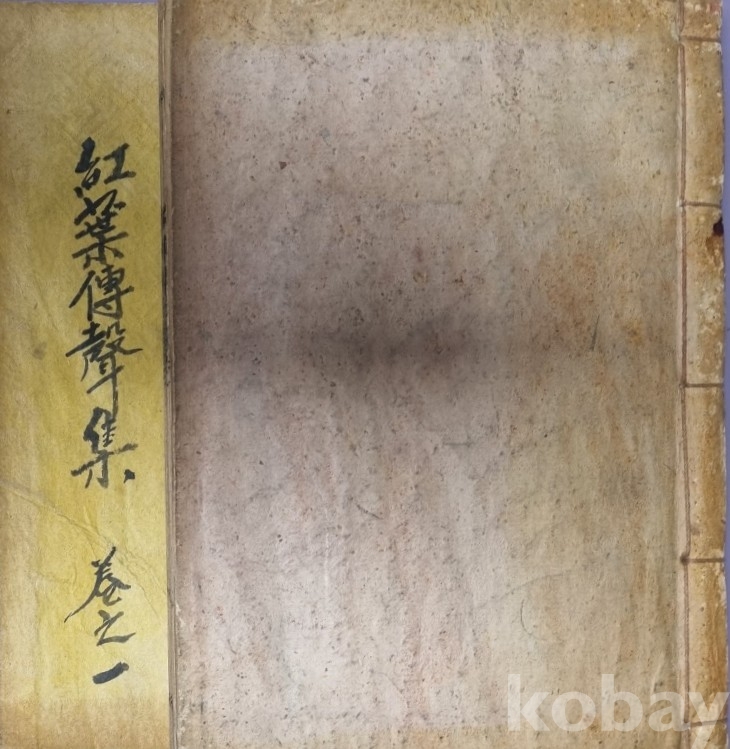 紅葉傳聲集 卷之一
kobay